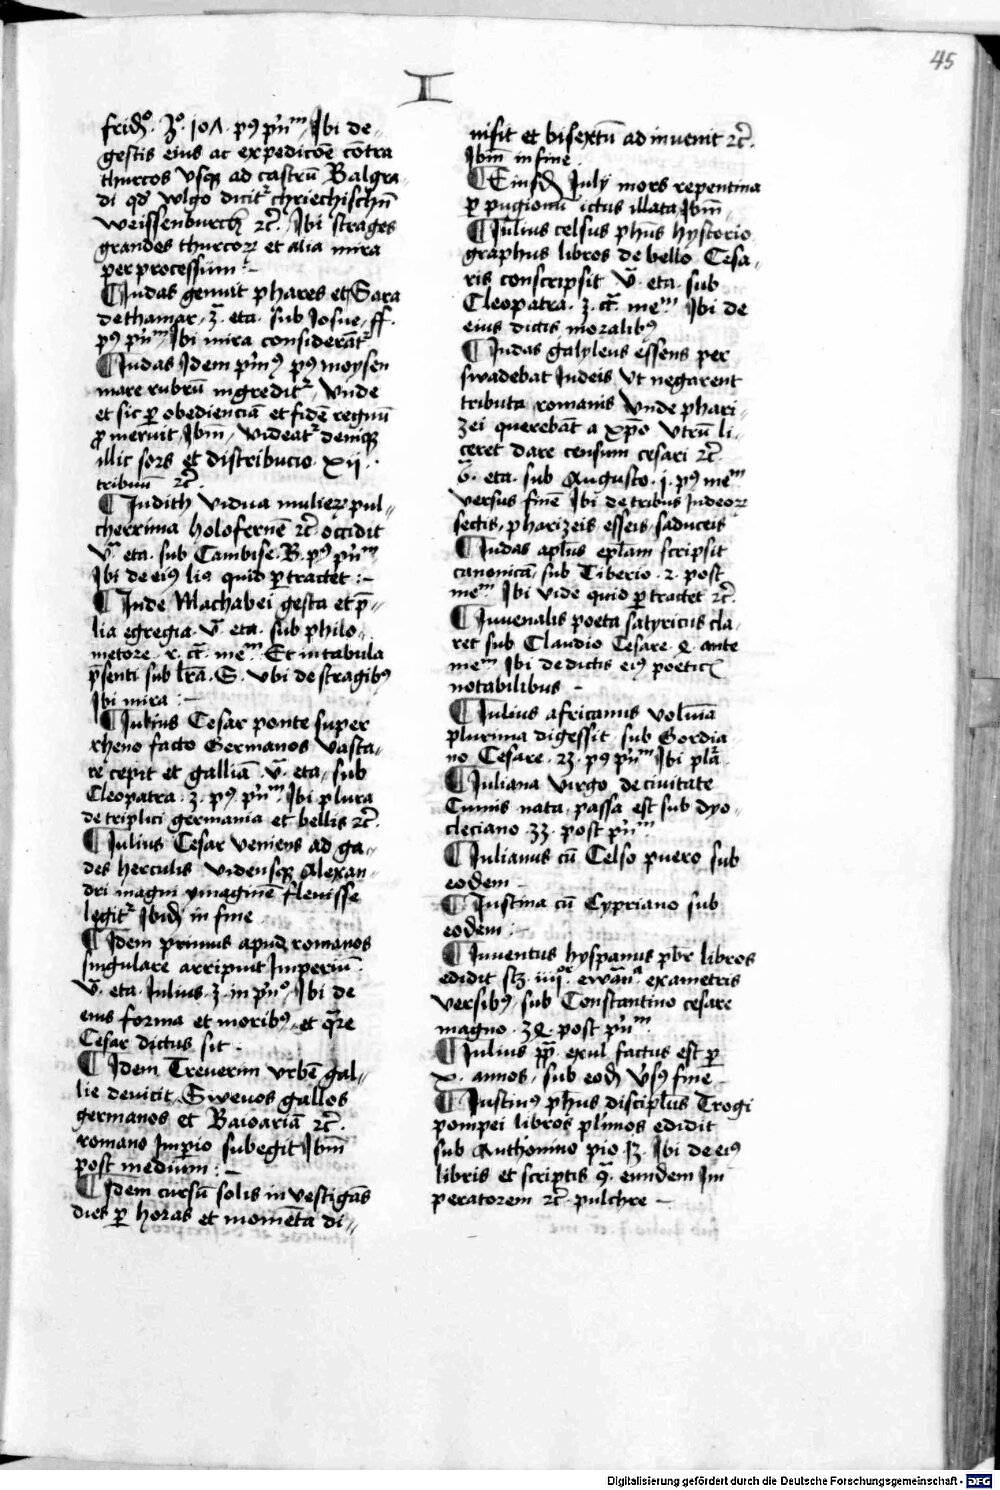 45
I
frid̄o. 3o. 107. p9 p̄m̄m, Ibi de=
gestis eius ac expedicōe cōtra
thurcos vsq3 ad castrū Balgra=
di qd̄ vulgo dicit chriechischn̄
weissenburch rc̄. Ibi strages
grandes thurcor et alia mira
per processum :-
¶ Iudas genuit phares et Sara
de thamar, 3. eta. sub Iosue, ff.
p9 p̄m̄m, Ibi mira considerāt
¶ Iudas Idem prim9 p9 moysen
mare rubrū ingredit, Vnde
et sic p obedienciā et fidē regnū
pmeruit, Ibm̄, videat deniq3
illic sors et distribucio xij.
tribuū rc̄.
¶ Iudith vidua mulier pul=
cherrima holofernē rc̄ occidit
v. eta. sub Cambise. B. p9 p̄m̄m
Ibi de ei9 li9 quid ptractet :-
¶ Inde Machabei gesta et p̄=
lia egregia. v. eta. sub philo=
metore. r. cr̄. mem. Et in tabula
p̄senti sub lr̄a. S. vbi de stragib9
Ibi mira :-
¶ Iulius Cesar ponte super
rheno facto Germanos vasta=
re cepit et galliā. v. eta, sub
Cleopatra. 3. p9 p̄m̄m. Ibi plura
de triplici germania et bellis rc̄.
¶ Iulius Cesar veniens ad ga=
des herculis vidensq3 Alexan=
dri magni ymaginē flenisse
legit Ibid̄ in fine
¶ Idem primus apud romanos
singulare arripuit Imperiū.
v. eta. Iulius. 3. in p̄mo, Ibi de
eius forma et morib9, et q̄re
Cesar dictus sit.
¶ Idem Treuerim vrbē gal=
lie deuicit, Sweuos gallos
germanos et Baioariā rc̄.
romano Imperio subegit Ibm̄
post medium :-
¶ Idem cursū solis inuestigās
dies p horas et momēta di=
uisit et bisextū adinuenit rc̄.
Ibm̄ in fine.
¶ Eiusd̄ Iulÿ mors repentina
p pugionū ictus illata Ibm̄.
¶ Iulius celsus phus hystorio
graphus libros de bello Cesa=
ris conscripsit v. eta. sub
Cleopatra. 3. cr̄. mem. Ibi de
eius dictis moralib9
¶ Iudas galyleus essens per
swadebat Iudeis vt negarent
tributa romanis Vnde phari=
zei querebāt a xp̄o vtrū li=
ceret dare censum cesari rc̄.
6. eta. sub Augusto. i. p9 mem
versus finē Ibi de tribus Iudeor
sectis, pharizeis esseis, saduceis
¶ Iudas apl̄us epl̄am scripsit
canonicā, sub Tiberio. 2. post
mem Ibi vide quid ptractet rc̄.
¶ Iuuenalis poeta satyricus cla=
ret sub Claudio Cesare. 2. ante
mem Ibi de dictis ei9 poetic
notabilibus -
¶ Iulius africanus volm̄ia
plurima digessit, sub Gordia=
no Cesare. 23. p9 p̄m̄m Ibi pl̄a.
¶ Iuliana virgo de ciuitate
Cumis nata, passa est sub dyo=
cleciano. 33. post p̄m̄m
¶ Iulianus cū Celso puero sub
eodem -
¶ Iustina cū Cypriano sub
eodem :-
¶ Iuuentus hyspanus pbr libros
edidit sz. iiijor. ewān. exametris
versib9, sub Constantino cesare
magno. 32. post p̄m̄m.
¶ Iulius pp̄. exul factus est p
x. annos, sub eod̄ vs9 fine -
¶ Iustin9 phus discipl̄us Trogi
pompei libros pl̄imos edidit
sub Anthonino pio. 13. Ibi de ei9
libris et scriptis q. eundem Im
peratorem rc̄. pulchre -
Digitalisierung gefördert durch die Deutsche Forschungsgemeinschaft - DFG